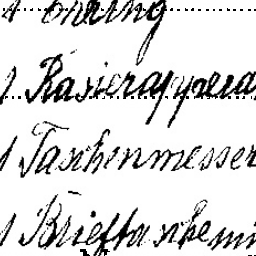 1 Ohring
1 Rasierappara
1 Taschenmesser
1 Brieftasche mi